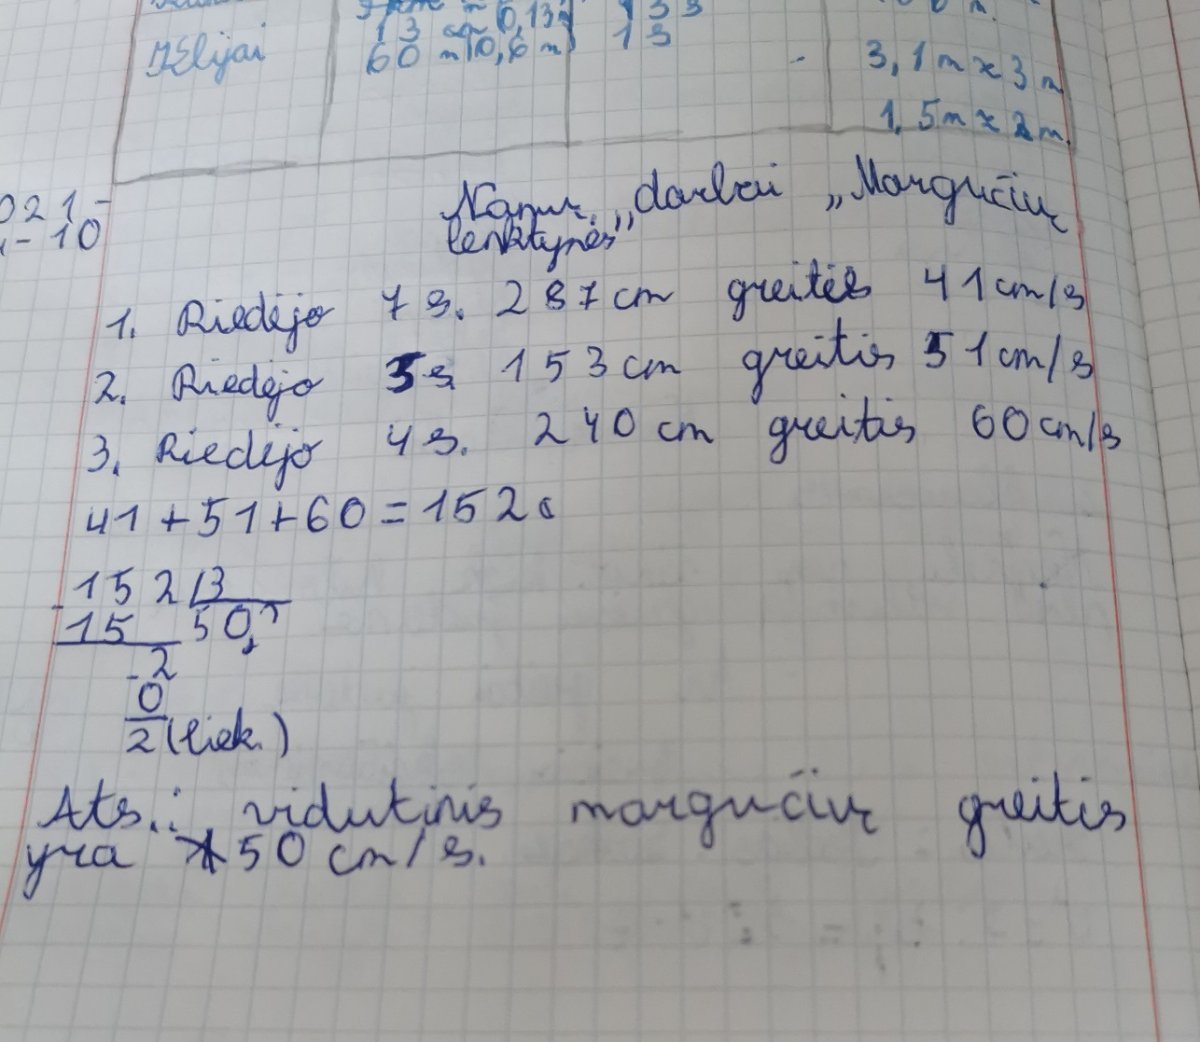 13 cm (0,13
60 m (0,6 m) 13
3,1m x 3m
1,5m x 2m
021-
-10
Namų „darbai „Margučių
lenktynės"
1. Riedėjo 7s. 287cm greitis 41cm/s
2. Riedėjo 3s 153cm greitis 51cm/s
3. Riedėjo 4s. 240cm greitis 60cm/s
41+51+60=152
-152|3
15 50,
-2
0
2(liek.)
Ats.: vidutinis margučių greitis
yra 50 cm/s.